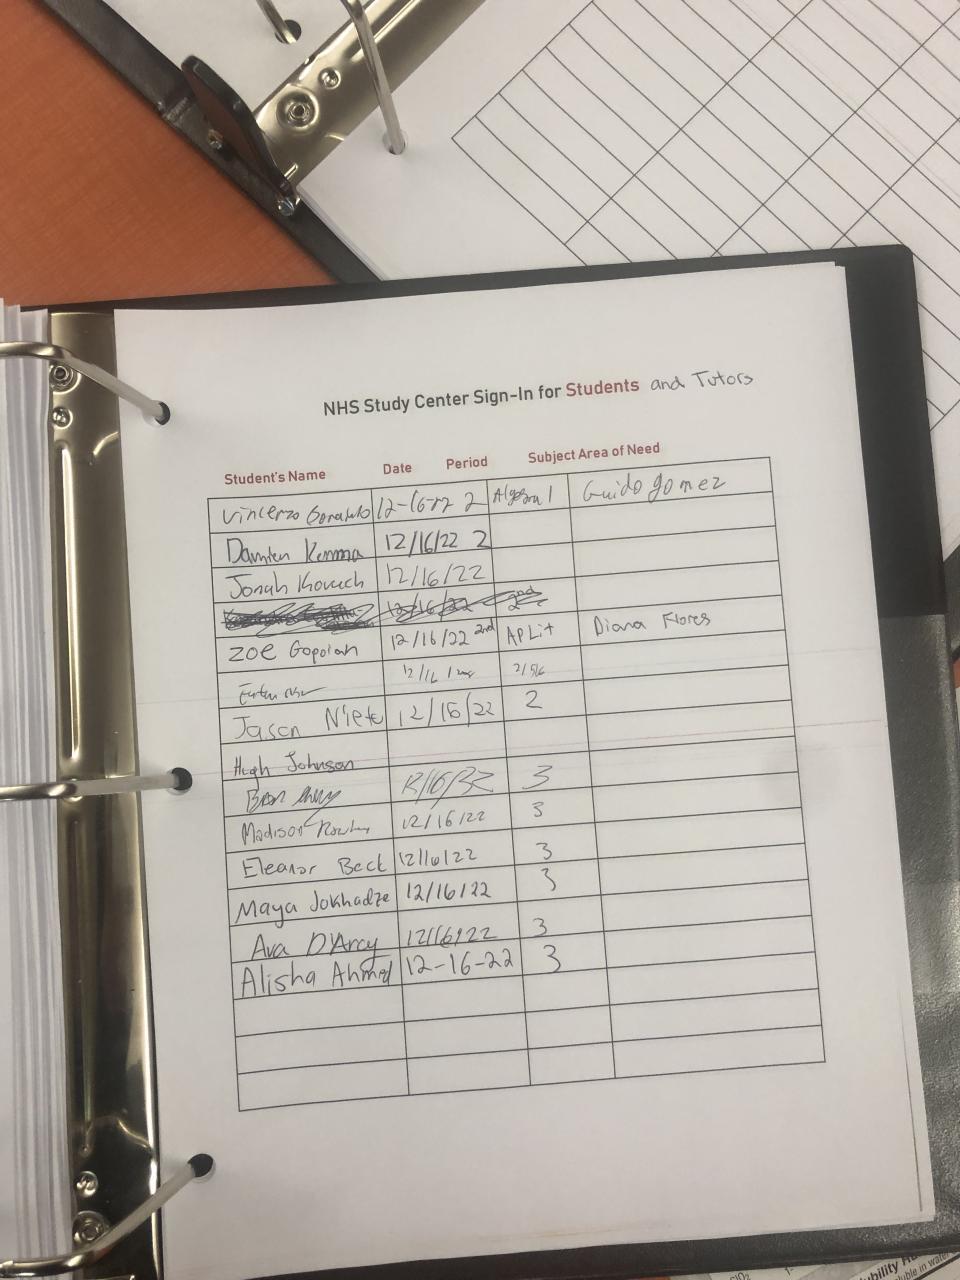 NHS Study Center Sign-In for Students and Tutors
Student's Name Date Period Subject Area of Need
Vincenzo 12-16-22 2 Algebra 1 Guido gomez
Damien 12/16/22 2
Jonah 12/16/22
12/16/22 2nd
Zoe Gopoian 12/16/22 2nd AP Lit Diana Flores
12/16
Jason Nieto 12/16/22 2
Hugh Johnson
12/16/22 3
Madison 12/16/22 3
Eleanor Beck 12/16/22 3
Maya Jokhadze 12/16/22 3
Ava D'Arcy 12/16/22 3
Alisha Ahmed 12-16-22 3